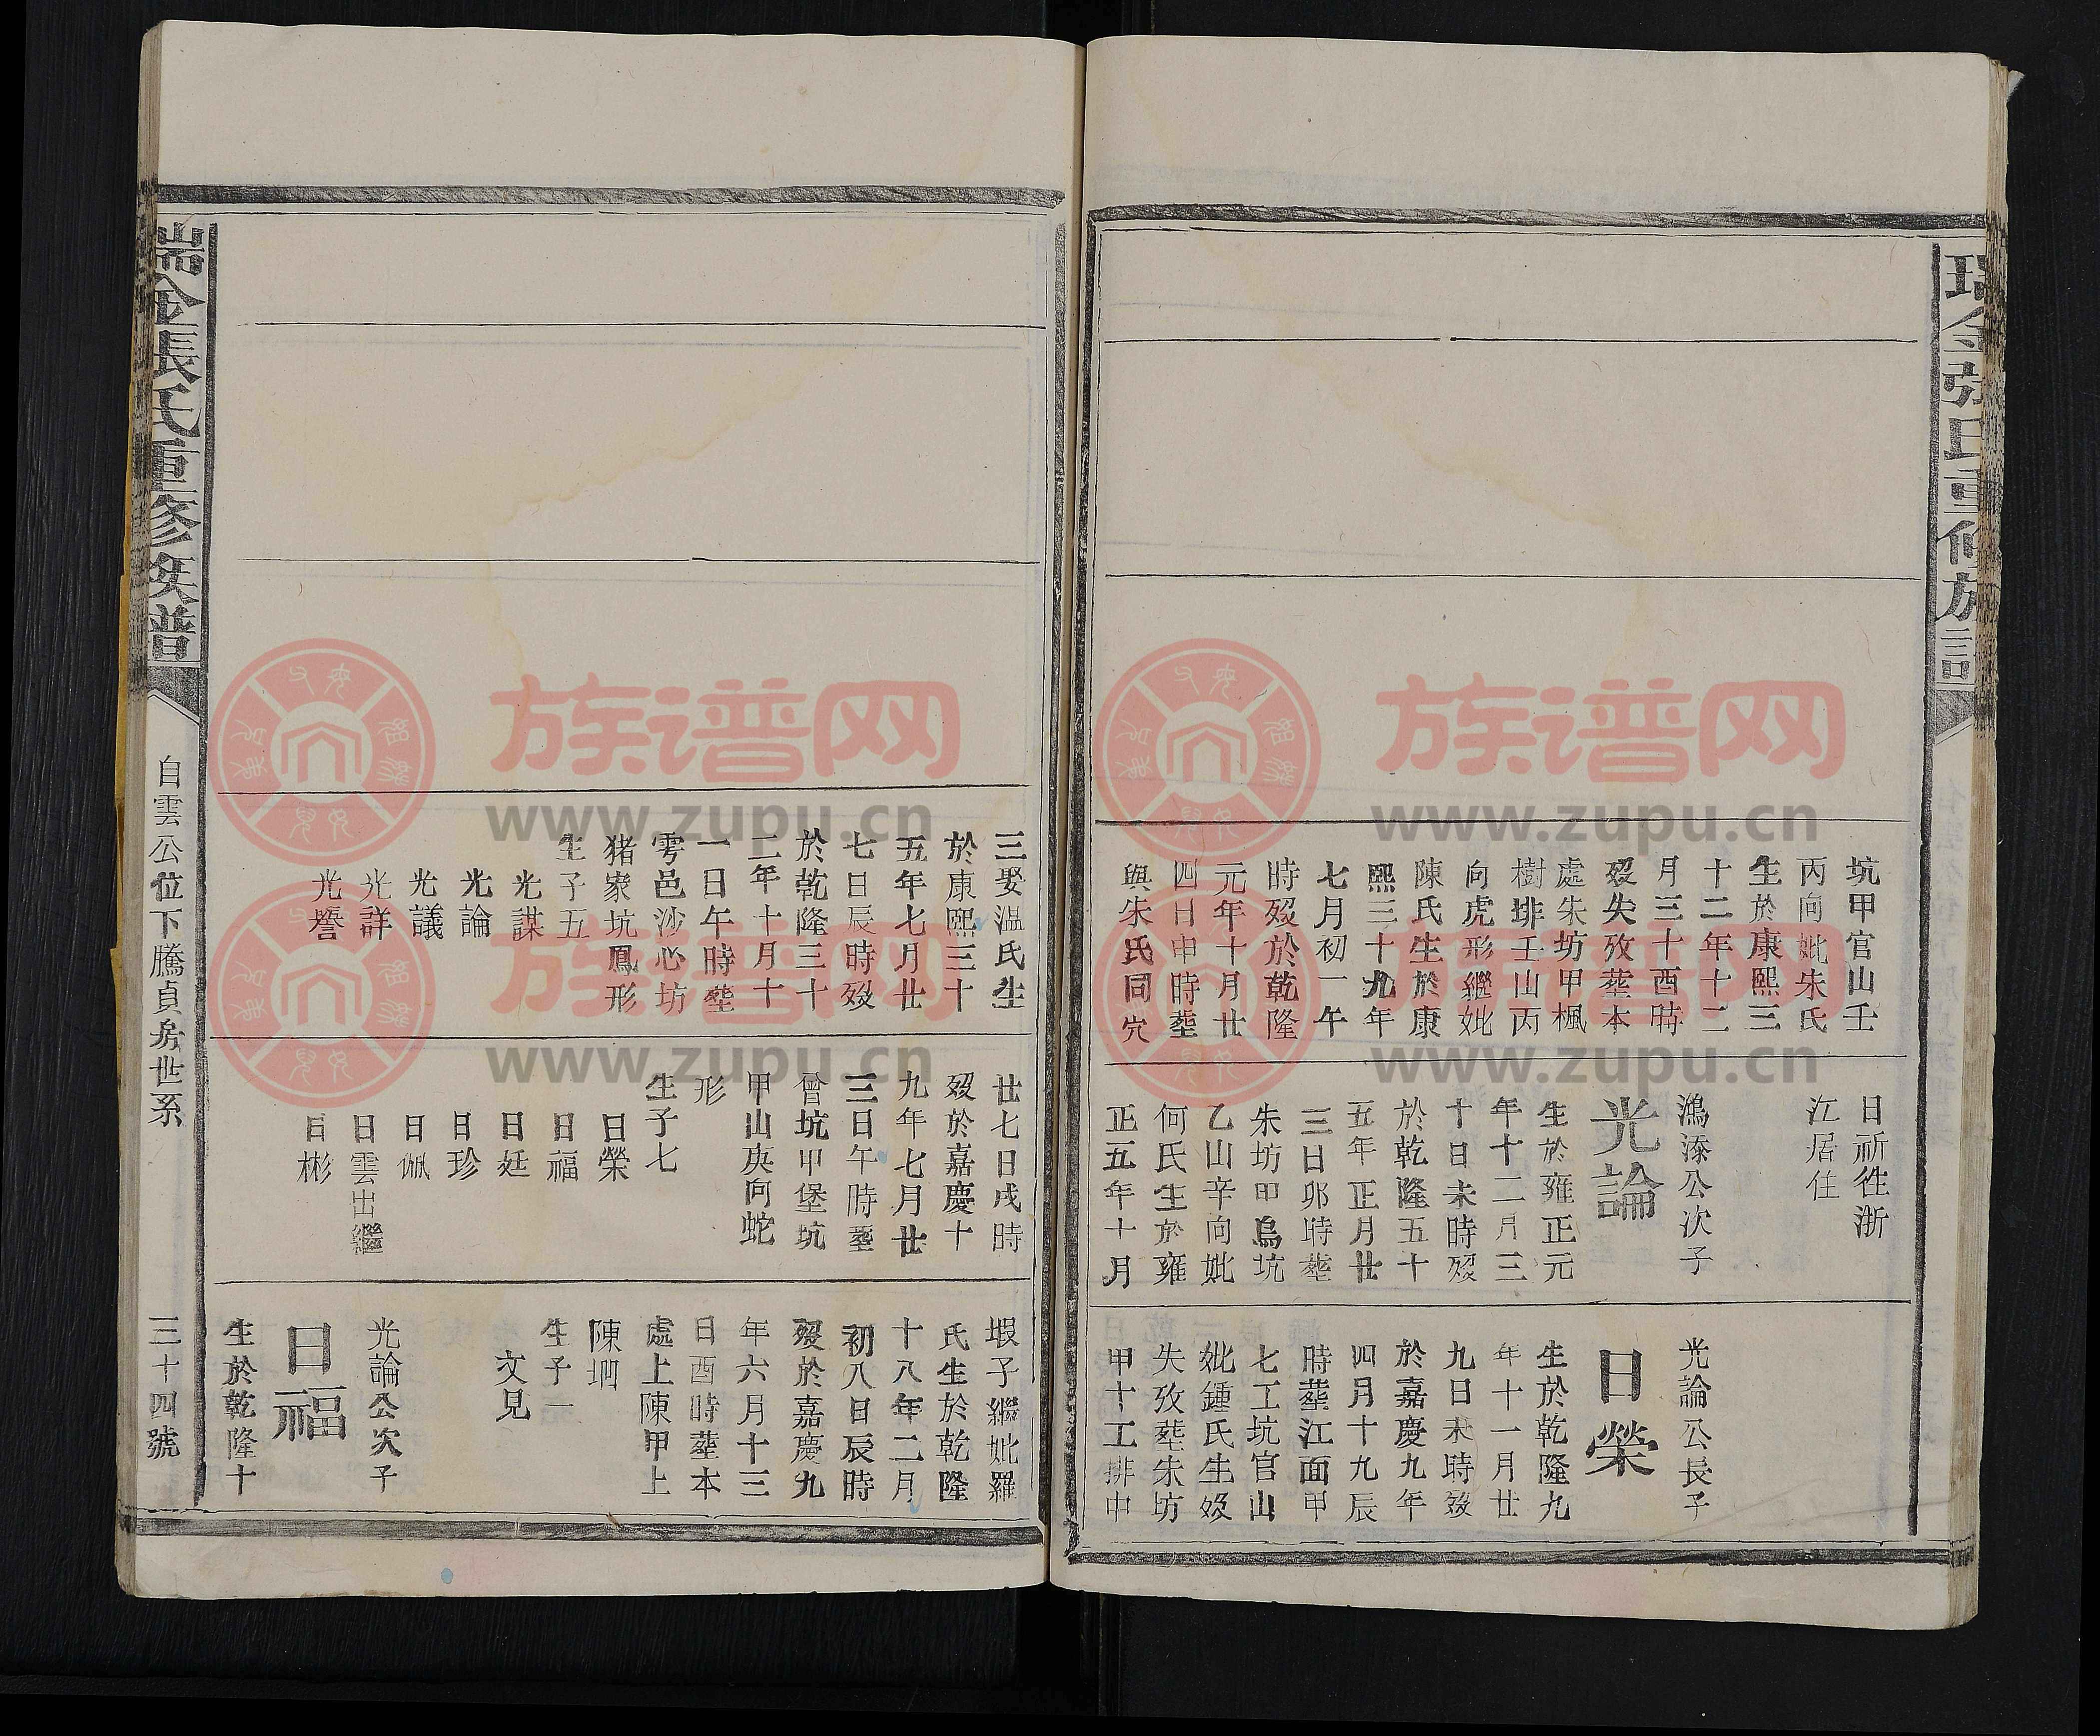 瑞金張氏重修族譜
坑甲官山壬
丙向妣朱氏
生於康熙三
十二年十二
月三十酉時
歿失攷塟本
處朱坊甲楓
樹排壬山丙
向虎形繼妣
陳氏生於康
熙三十九年
七月初一午
時歿於乾隆
元年十月廿
四日申時塟
與朱氏同穴
日祈徃浙
江居住
鴻添公次子
光論
生於雍正元
年十二月三
十日未時歿
於乾隆五十
五年正月廿
三日卯時塟
朱坊甲烏坑
乙山辛向妣
何氏生於雍
正五年十月
光論公長子
日榮
生於乾隆九
年十一月廿
九日未時歿
於嘉慶九年
四月十九辰
時塟江面甲
七工坑官山
妣鍾氏生歿
失攷塟朱坊
甲十工排中
三娶溫氏生
於康熙三十
五年七月廿
七日辰時歿
於乾隆三十
二年十月十
一日午時塟
雩邑沙心坊
猪家坑鳳形
生子五
光謀
光論
光議
光詳
光譽
廿七日戌時
歿於嘉慶十
九年七月廿
三日午時塟
曾坑甲堡坑
甲山庚向蛇
形
生子七
日榮
日福
日廷
日珍
日佩
日雲出繼
日彬
坭子繼妣羅
氏生於乾隆
十八年二月
初八日辰時
歿於嘉慶九
年六月十三
日酉時塟本
處上陳甲上
陳坰
生子一
文見
光論公次子
日福
生於乾隆十
瑞金張氏重修族譜
自雲公位下騰貞房世系
三十四號
族谱网
www.zupu.cn
族谱网
www.zupu.cn
族谱网
www.zupu.cn
族谱网
www.zupu.cn